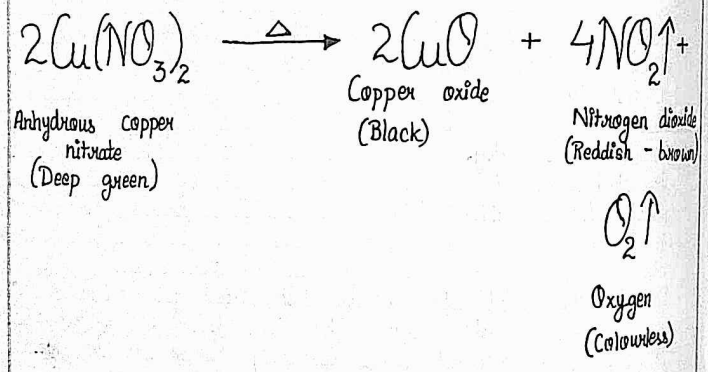 2Cu(NO₃)₂ —Δ→ 2CuO + 4NO₂↑ +
Anhydrous copper
nitrate
(Deep green)
Copper oxide
(Black)
Nitrogen dioxide
(Reddish - brown)
O₂↑
Oxygen
(Colourless)